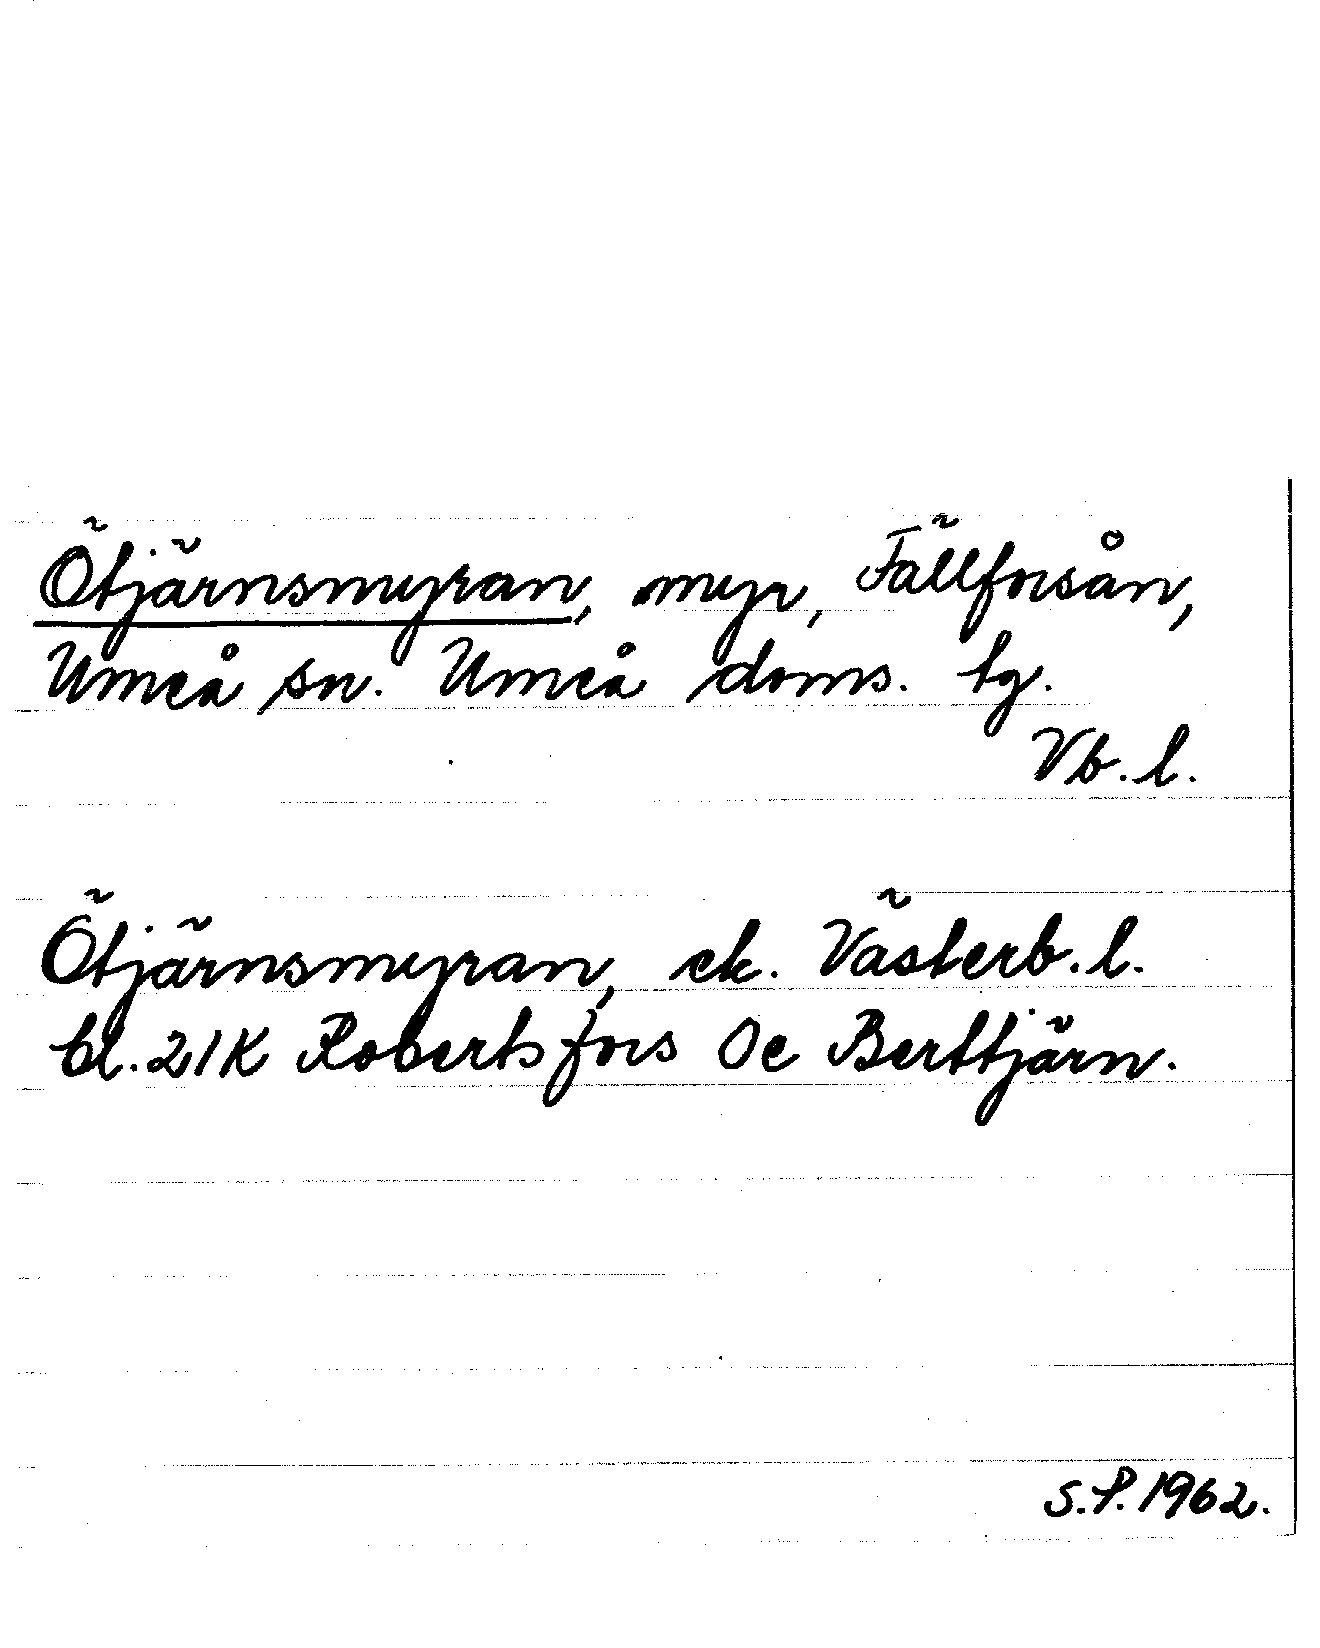 Ötjärnsmyran, myr, Fällforsån,
Umeå sn. Umeå doms. tg.
Vb. l.
Ötjärnsmyran, ek. Västerb. l.
bl. 21K Robertsfors 0e Berttjärn.
S.P. 1962.